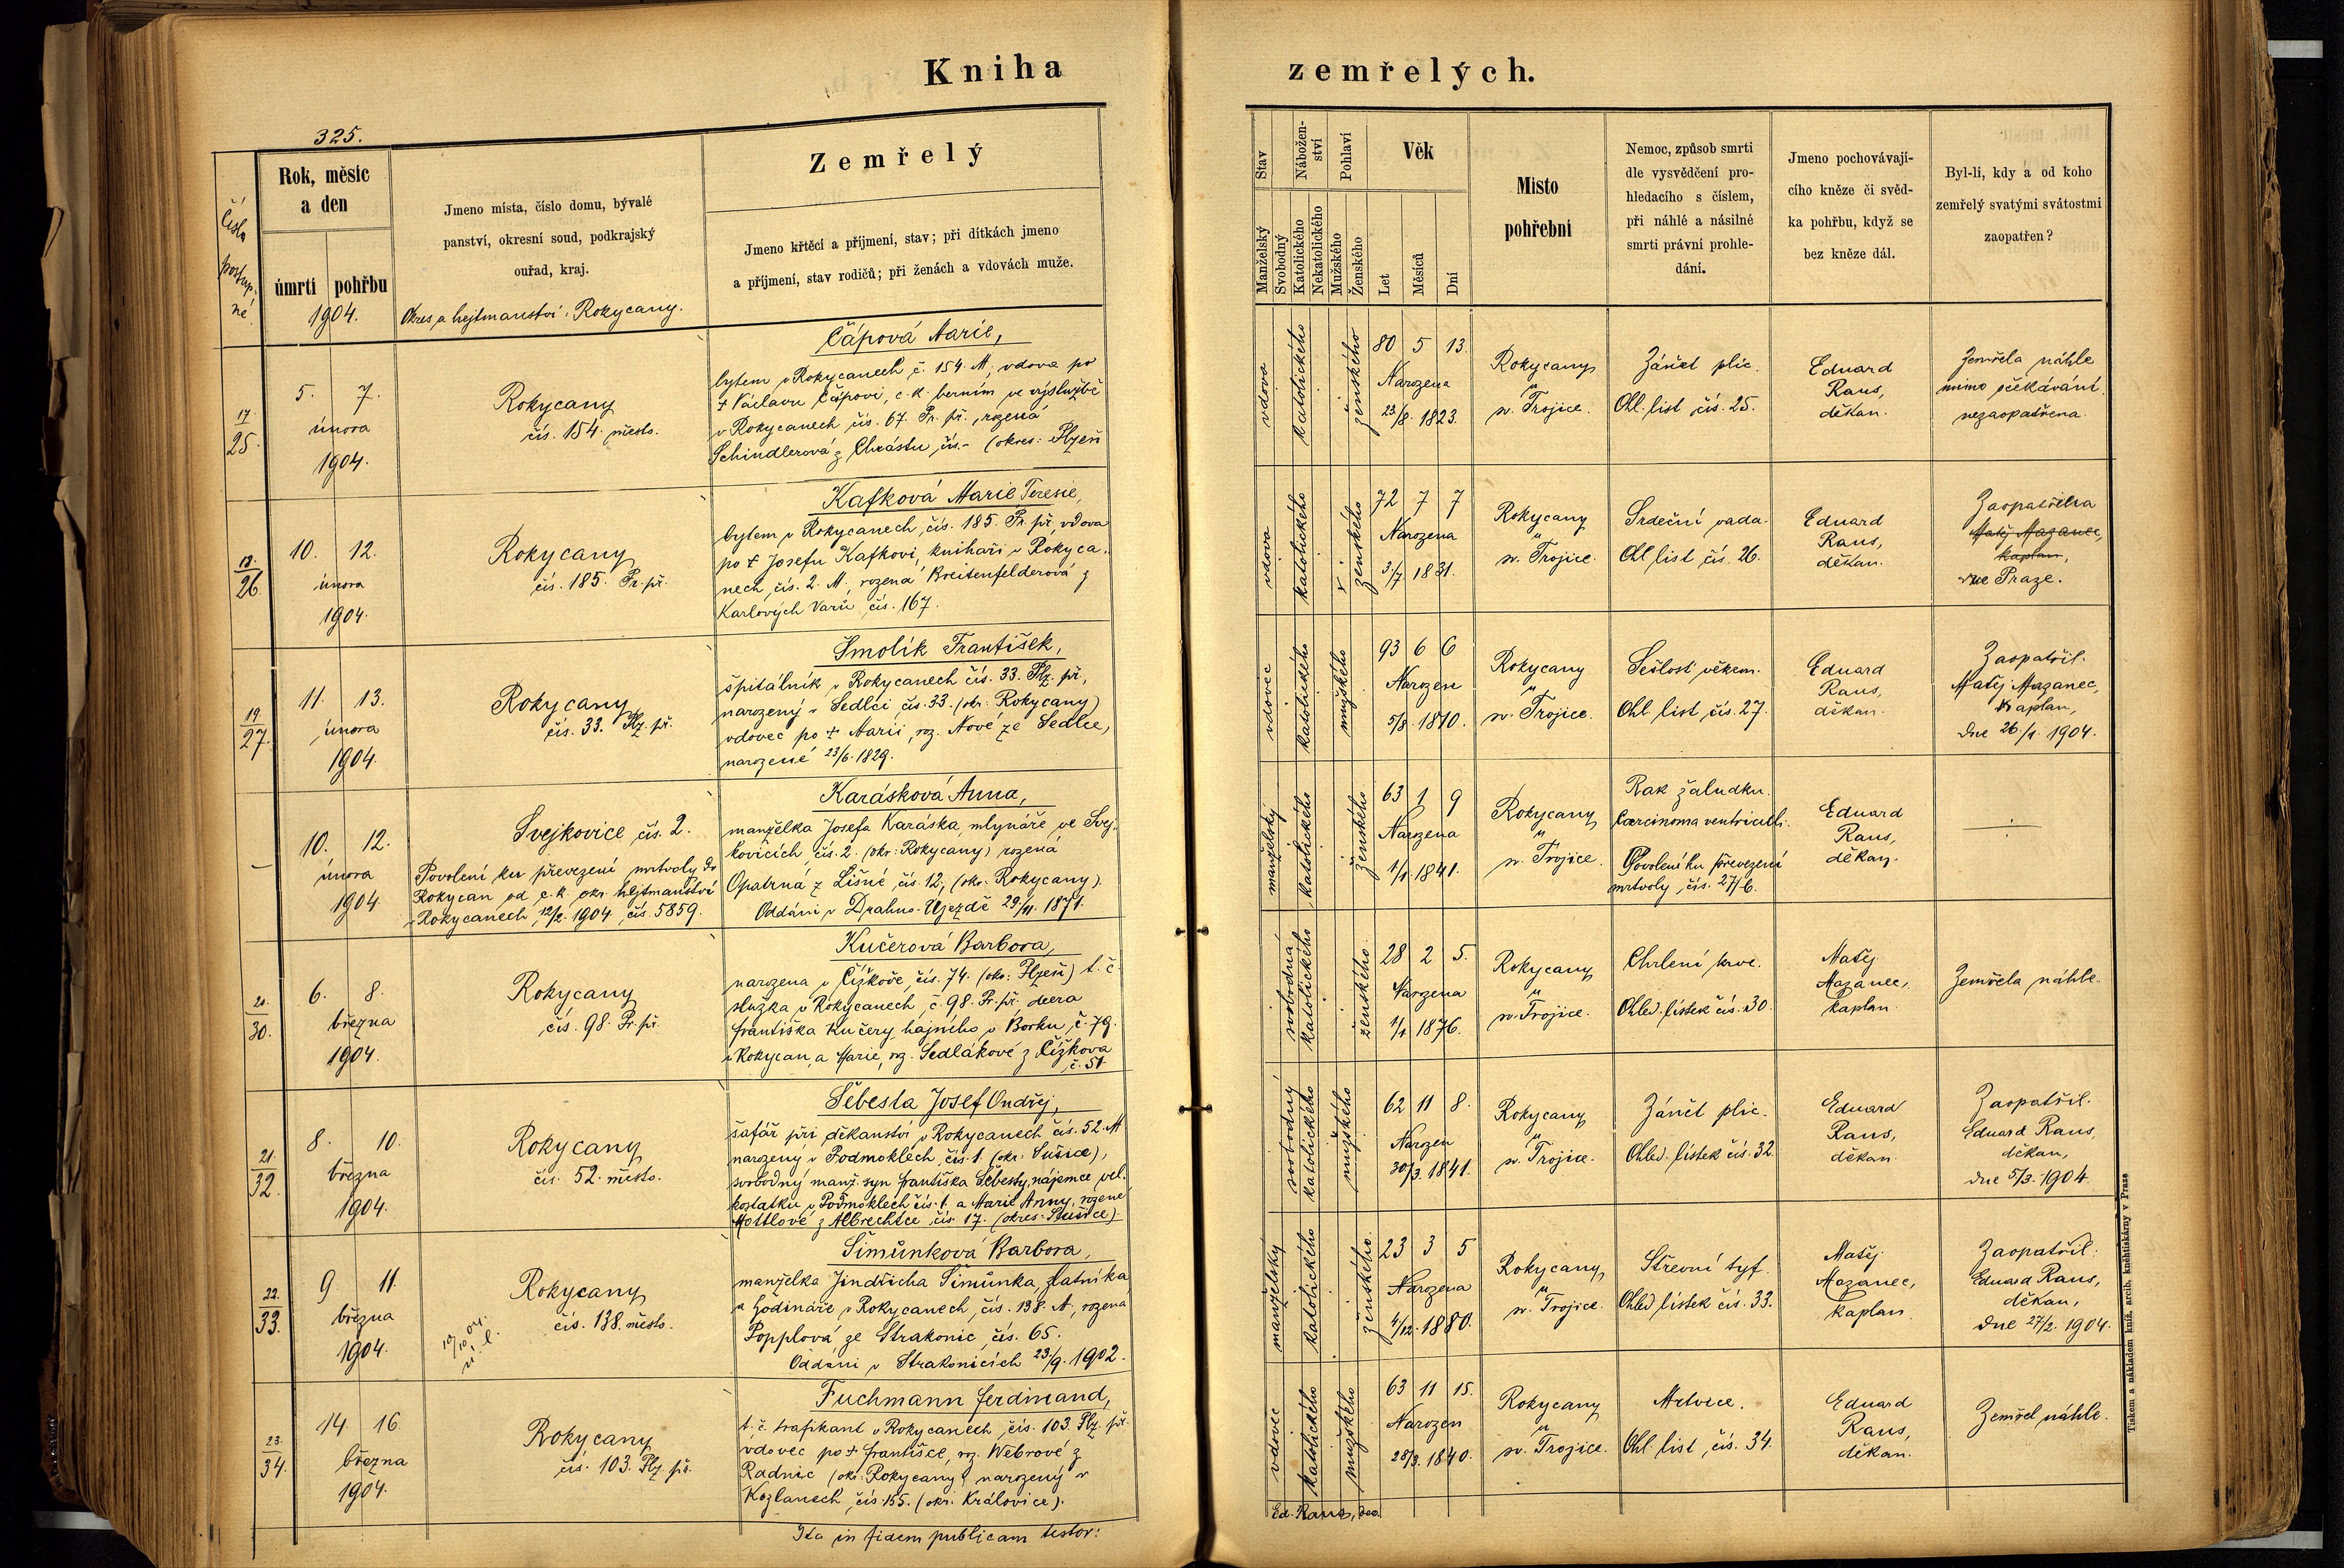 Kniha
zemřelých.
325.
Číslo
postup-
né.
Rok, měsíc
a den
úmrtí
pohřbu
1904.
Jmeno místa, číslo domu, bývalé
panství, okresní soud, podkrajský
ouřad, kraj.
Okres a hejtmanství: Rokycany.
Zemřelý
Jmeno křtěcí a příjmení, stav; při dítkách jmeno
a příjmení, stav rodičů; při ženách a vdovách muže.
Stav
Manželský
Svobodný
Nábožen-
ství
Katolického
Nekatolického
Pohlaví
Mužského
Ženského
Věk
Let
Měsíců
Dní
Místo
pohřební
Nemoc, způsob smrti
dle vysvědčení pro-
hledacího s číslem,
při náhlé a násilné
smrti právní prohle-
dání.
Jmeno pochovávají-
cího kněze či svěd-
ka pohřbu, když se
bez kněze dál.
Byl-li, kdy a od koho
zemřelý svatými svátostmi
zaopatřen?
17.
25.
5. 7.
února
1904.
Rokycany
čís. 154. město.
Čápová Marie,
bytem v Rokycanech č. 154. M., vdova po
† Václavu Čápovi, c. k. berním ve výslužbě
v Rokycanech čís. 67. Pr. př., rozená
Schindlerová z Chrástu, čís.- (okres: Plzeň
vdova
katolického
ženského
80 5 13.
Narozena
23./8. 1823.
Rokycany
u
sv. Trojice.
Zánět plic.
Ohl. list čís. 25.
Eduard
Raus,
děkan.
Zemřela náhle
mimo očekávání
nezaopatřena
18.
26.
10. 12.
února
1904.
Rokycany
čís. 185. Pr. př.
Kafková Marie Teresie,
bytem v Rokycanech, čís. 185. Pr. př., vdova
po † Josefu Kafkovi, knihaři v Rokyca-
nech, čís. 2. M., rozená Breitenfelderová z
Karlových Varů, čís. 167.
vdova
katolického
ženského
72 7 7
Narozena
3./7. 1831.
Rokycany
u
sv. Trojice.
Srdeční vada.
Ohl. list čís. 26.
Eduard
Raus,
děkan.
Zaopatřena
Matěj Mazanec,
kaplan,
v Praze.
19.
27.
11. 13.
února
1904.
Rokycany
čís. 33. Plz. př.
Smolík František,
špitálník v Rokycanech čís. 33. Plz. př.,
narozený v Sedlci čís. 33. (okr. Rokycany)
vdovec po † Marii, roz. Nové ze Sedlce,
narozené 23/6. 1829.
vdovec
katolického
mužského
93 6 6
Narozen
5/8. 1810.
Rokycany
u
sv. Trojice.
Sešlost věkem.
Ohl. list čís. 27.
Eduard
Raus,
děkan.
Zaopatřil.
Matěj Mazanec,
kaplan,
dne 26./1. 1904.
–
10. 12.
února
1904.
Svejkovice čís. 2.
Povolení ku převezení mrtvoly do
Rokycan od c. k. okr. hejtmanství
v Rokycanech, 12/2. 1904, čís. 5859.
Karásková Anna,
manželka Josefa Karáska, mlynáře ve Svej-
kovicích, čís. 2. (okr: Rokycany) rozená
Opatrná z Lišné čís. 12, (okr. Rokycany).
Oddáni v Drahno-Ujezdě 29/11. 1871.
manželský
katolického
ženského
63 1 9
Narozena
1/1. 1841.
Rokycany
u
sv. Trojice.
Rak žaludku.
Carcinoma ventriculi.
Povolení ku převezení
mrtvoly, čís. 27/6.
Eduard
Raus,
děkan.
20.
30.
6. 8.
března
1904.
Rokycany
čís. 98. Pr. př.
Kučerová Barbora,
narozena v Čížkově, čís. 74. (okr. Plzeň) t. č.
služka v Rokycanech, č. 98. Pr. př. dcera
Františka Kučery, hajného v Borku, č. 79.
u Rokycan, a Marie, roz. Sedlákové z Čížkova
č. 51.
svobodná
katolického
ženského.
28 2 5.
Narozena
1/1 1876.
Rokycany
u
sv. Trojice.
Chrlení krve.
Ohled. lístek čís. 30.
Matěj
Mazanec,
kaplan.
Zemřela náhle.
21.
32.
8. 10.
března
1904.
Rokycany
čís. 52. město.
Šebesta Josef Ondřej,
šafář při děkanství v Rokycanech čís. 52. M
narozený v Podmoklech, čís. 1. (okr. Sušice),
svobodný manž. syn Františka Šebesty, nájemce vel-
kostatku v Podmoklech čís. 1. a Marie Anny, rozené
Mottlové z Albrechtce čís. 17. (okres: Sušice).
svobodný
katolického
mužského
62 11 8.
Narozen
30/3. 1841.
Rokycany
u
sv. Trojice.
Zánět plic.
Ohled. lístek čís. 32.
Eduard
Raus,
děkan.
Zaopatřil.
Eduard Raus,
děkan,
dne 5/3. 1904.
22.
33.
9. 11.
března
1904.
10/10 04.
Rokycany
čís. 138. město.
Šimůnková Barbora,
manželka Jindřicha Šimůnka, zlatníka
a hodináře v Rokycanech, čís. 138. M., rozená
Popplová ze Strakonic, čís. 65.
Oddáni v Strakonicích 23./9. 1902.
manželský
katolického
ženského.
23 3 5
Narozena
4/12. 1880.
Rokycany
u
sv. Trojice.
Střevní tyf.
Ohled. lístek čís. 33.
Matěj
Mazanec,
kaplan
Zaopatřil:
Eduard Raus,
děkan,
dne 27/2. 1904.
23.
34.
14. 16.
března
1904.
Rokycany
čís. 103. Plz. př.
Fuchmann Ferdinand,
t. č. trafikant v Rokycanech, čís. 103. Plz. př.
vdovec po † Františce, roz. Webrové z
Radnic (okr. Rokycany) narozený v
Kozlanech, čís. 155. (okr. Kralovice).
vdovec
katolického
mužského
63 11 15.
Narozen
28/3. 1840.
Rokycany
u
sv. Trojice.
Mrtvice.
Ohl. list, čís. 34.
Eduard
Raus,
děkan.
Zemřel náhle.
Ita in fidem publicam testor:
Ed. Raus, dec.
Tiskem a nákladem kníž. arcib. knihtiskárny v Praze